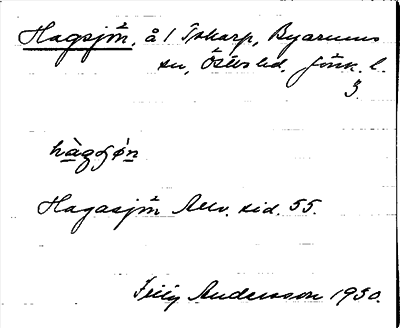 Hagsjön, å 1 Taharp, Byarums
sn, Östbo hd, Jönk. l.
3.
hàgʃø̀n
Hagasjön Allv. sid. 55.
Andersson 1930.